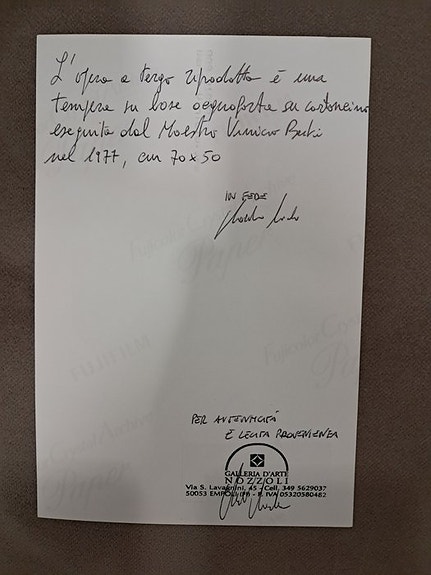 L'opera a tergo riprodotta è una
tempera su base acquaforte su cartoncino
eseguita dal Maestro Vinicio Berti
nel 1977, cm 70x50
IN FEDE
PER AUTENTICITÁ
E LECITA PROVENIENZA
GALLERIA D'ARTE
NOZZOLI
Via S. Lavagnini, 45 - Cell. 349 5629037
50053 EMPOLI (FI) - P. IVA 05320580482
FUJIFILM
Fujicolor
Paper